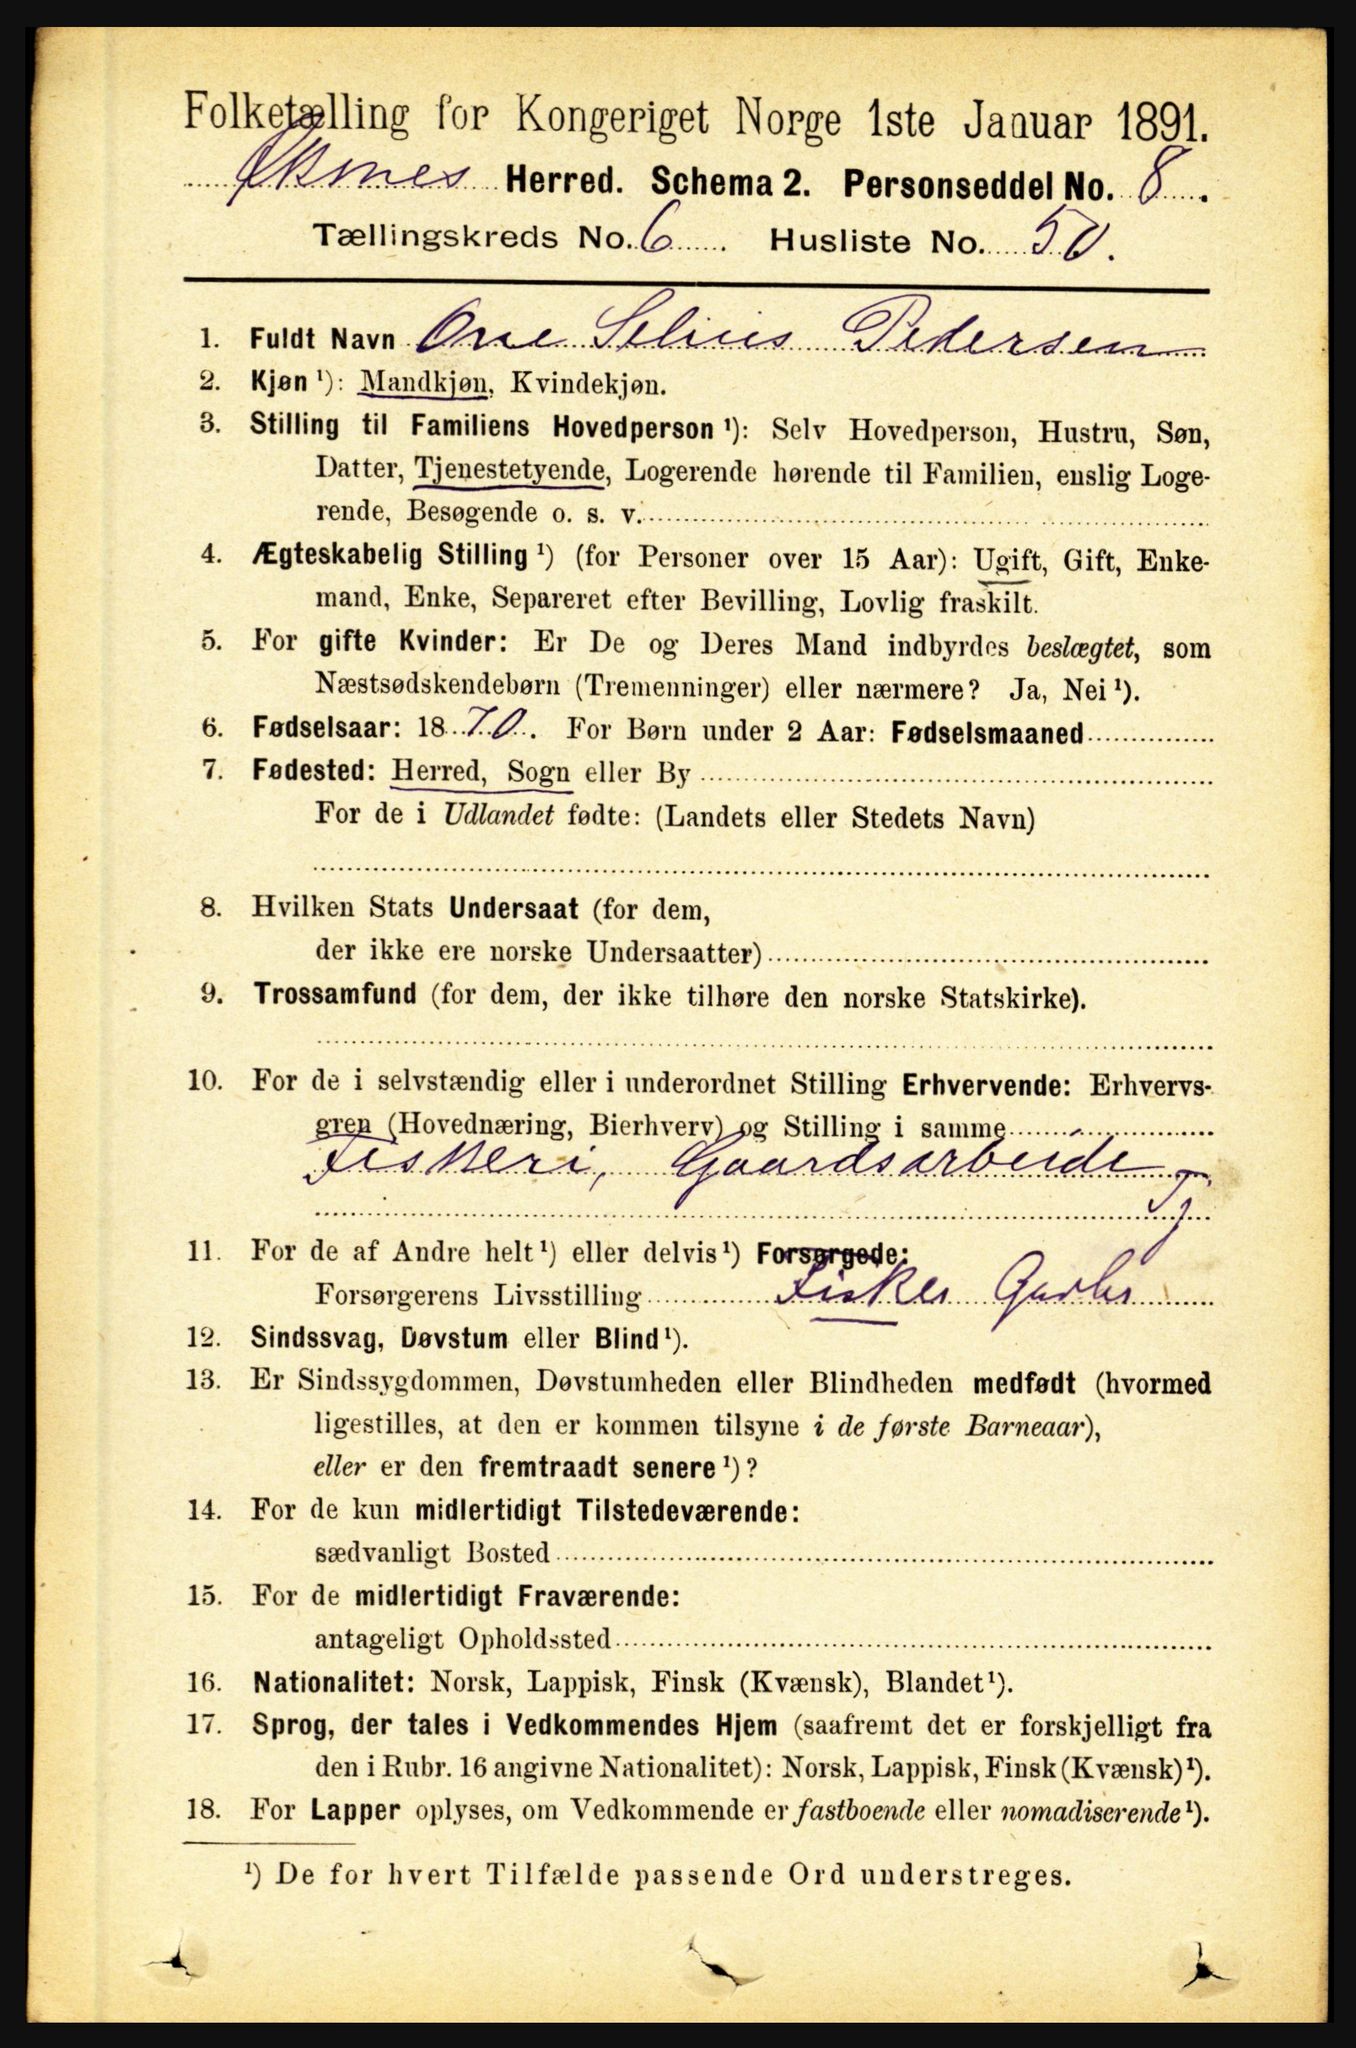 Folketælling for Kongeriget Norge 1ste Januar 1891.
Øksnes Herred. Schema 2. Personseddel No. 8.
Tællingskreds No. 6. Husliste No. 50.
1. Fuldt Navn Ove Selius Pedersen
2. Kjøn ¹): Mandkjøn, Kvindekjøn.
3. Stilling til Familiens Hovedperson ¹): Selv Hovedperson, Hustru, Søn,
Datter, Tjenestetyende, Logerende hørende til Familien, enslig Loge-
rende, Besøgende o. s. v.
4. Ægteskabelig Stilling ¹) (for Personer over 15 Aar): Ugift, Gift, Enke-
mand, Enke, Separeret efter Bevilling, Lovlig fraskilt.
5. For gifte Kvinder: Er De og Deres Mand indbyrdes beslægtet, som
Næstsødskendebørn (Tremenninger) eller nærmere? Ja, Nei ¹).
6. Fødselsaar: 1870. For Børn under 2 Aar: Fødselsmaaned
7. Fødested: Herred, Sogn eller By
For de i Udlandet fødte: (Landets eller Stedets Navn)
8. Hvilken Stats Undersaat (for dem,
der ikke ere norske Undersaatter)
9. Trossamfund (for dem, der ikke tilhøre den norske Statskirke).
10. For de i selvstændig eller i underordnet Stilling Erhvervende: Erhvervs-
gren (Hovednæring, Bierhverv) og Stilling i samme
Fiskeri, Gaardsarbeide
Tj
11. For de af Andre helt ¹) eller delvis ¹) Forsørgede:
Forsørgerens Livsstilling Fisker
12. Sindssvag, Døvstum eller Blind ¹).
13. Er Sindssygdommen, Døvstumheden eller Blindheden medfødt (hvormed
ligestilles, at den er kommen tilsyne i de første Barneaar),
eller er den fremtraadt senere ¹)?
14. For de kun midlertidigt Tilstedeværende:
sædvanligt Bosted
15. For de midlertidigt Fraværende:
antageligt Opholdssted
16. Nationalitet: Norsk, Lappisk, Finsk (Kvænsk), Blandet ¹).
17. Sprog, der tales i Vedkommendes Hjem (saafremt det er forskjelligt fra
den i Rubr. 16 angivne Nationalitet): Norsk, Lappisk, Finsk (Kvænsk) ¹).
18. For Lapper oplyses, om Vedkommende er fastboende eller nomadiserende ¹).
¹) De for hvert Tilfælde passende Ord understreges.